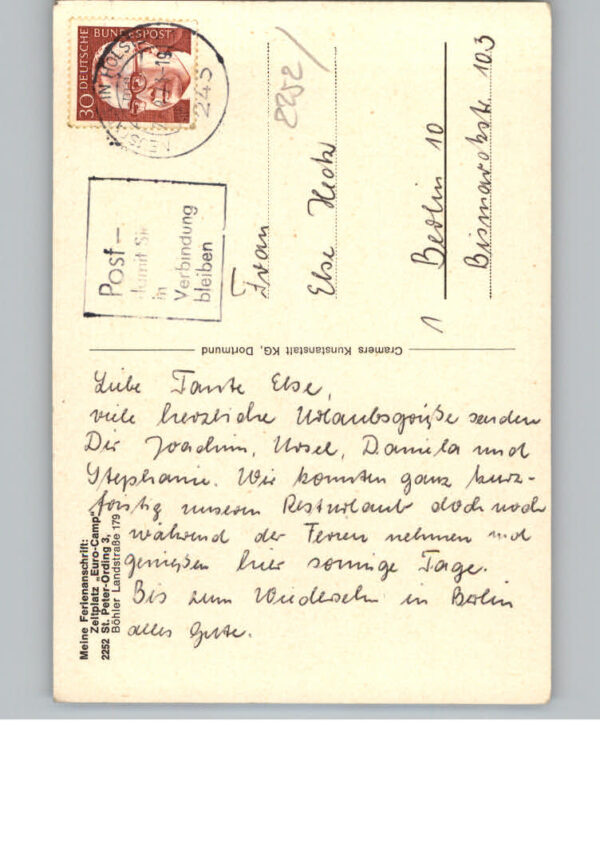 30 DEUTSCHE BUNDESPOST
243
Post –
damit Sie
in
Verbindung
bleiben
2252/
Frau
Else
1 Berlin 10
Bismarckstr. 103
Cramers Kunstanstalt KG, Dortmund
Liebe Tante Else,
viele herzliche Urlaubsgrüße senden
Dir Joachim, Ursel, Daniela und
Stephanie. Wir konnten ganz kurz-
fristig unseren Resturlaub doch noch
während der Ferien nehmen und
genießen hier sonnige Tage.
Bis zum Wiedersehn in Berlin
alles Gute.
Meine Ferienanschrift:
Zeltplatz „Euro-Camp"
2252 St. Peter-Ording 3,
Böhler Landstraße 179